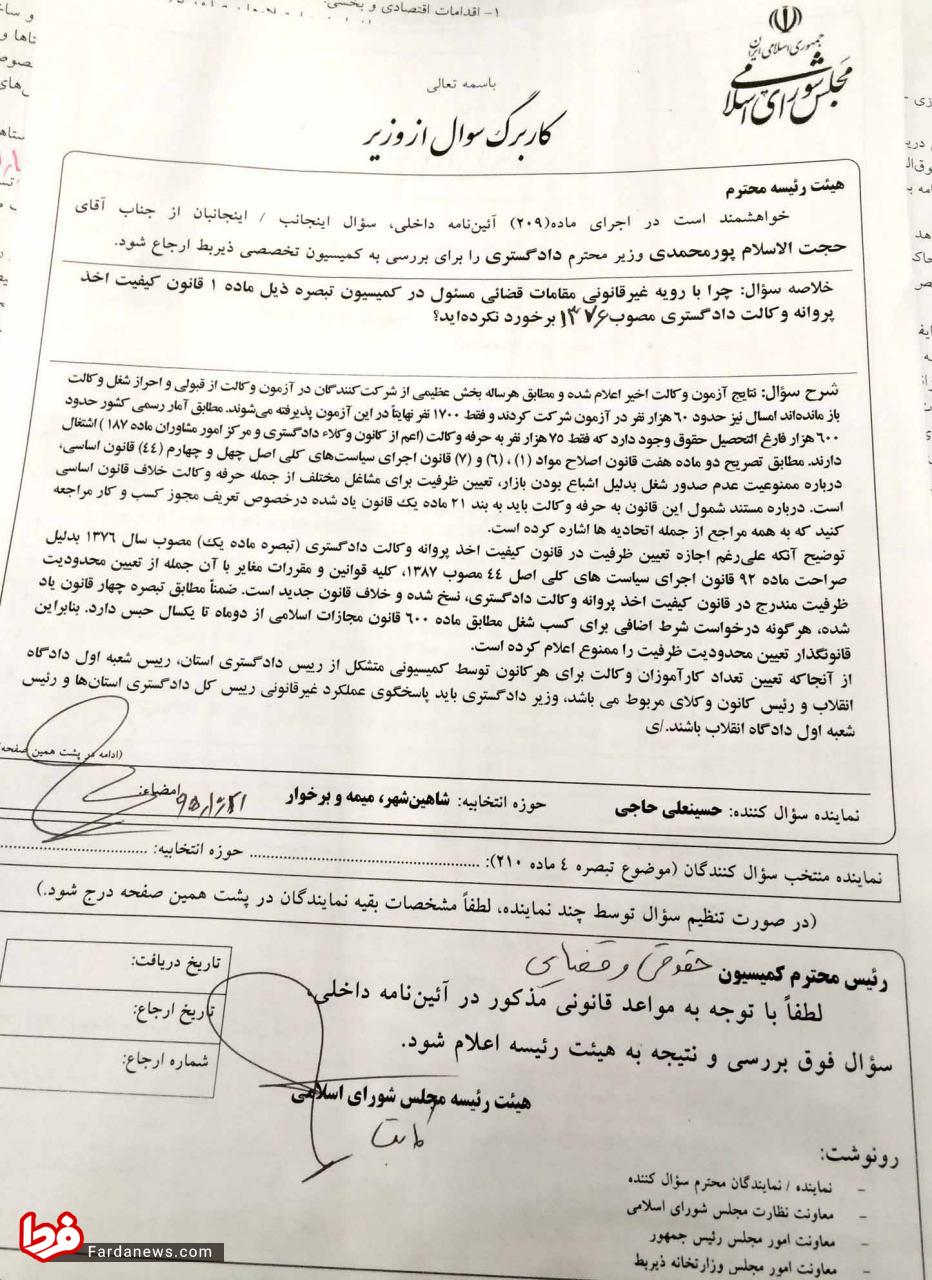 ۱- اقدامات اقتصادی و بخشی:
جمهوری اسلامی ایران
مجلس شورای اسلامی
باسمه تعالی
کاربرگ سوال از وزیر
هیئت رئیسه محترم
خواهشمند است در اجرای ماده(۲۰۹) آئین‌نامه داخلی، سؤال اینجانب / اینجانبان از جناب آقای
حجت الاسلام پورمحمدی وزیر محترم دادگستری را برای بررسی به کمیسیون تخصصی ذیربط ارجاع شود.
خلاصه سؤال: چرا با رویه غیرقانونی مقامات قضائی مسئول در کمیسیون تبصره ذیل ماده ۱ قانون کیفیت اخذ
پروانه وکالت دادگستری مصوب ۱۳۷۶ برخورد نکرده‌اید؟
شرح سؤال: نتایج آزمون وکالت اخیر اعلام شده و مطابق هرساله بخش عظیمی از شرکت‌کنندگان در آزمون وکالت از قبولی و احراز شغل وکالت
باز مانده‌اند امسال نیز حدود ۶۰ هزار نفر در آزمون شرکت کردند و فقط ۱۷۰۰ نفر نهایتاً در این آزمون پذیرفته می‌شوند. مطابق آمار رسمی کشور حدود
۶۰۰ هزار فارغ التحصیل حقوق وجود دارد که فقط ۷۵ هزار نفر به حرفه وکالت (اعم از کانون وکلاء دادگستری و مرکز امور مشاوران ماده ۱۸۷ ) اشتغال
دارند. مطابق تصریح دو ماده هفت قانون اصلاح مواد (۱) ، (۶) و (۷) قانون اجرای سیاست‌های کلی اصل چهل و چهارم (٤٤) قانون اساسی،
درباره ممنوعیت عدم صدور شغل بدلیل اشباع بودن بازار، تعیین ظرفیت برای مشاغل مختلف از جمله حرفه وکالت خلاف قانون اساسی
است. درباره مستند شمول این قانون به حرفه وکالت باید به بند ۲۱ ماده یك قانون یاد شده درخصوص تعریف مجوز کسب و کار مراجعه
کنید که به همه مراجع از جمله اتحادیه ها اشاره کرده است.
توضیح آنکه علی‌رغم اجازه تعیین ظرفیت در قانون کیفیت اخذ پروانه وکالت دادگستری (تبصره ماده یك) مصوب سال ۱۳۷٦ بدلیل
صراحت ماده ۹۲ قانون اجرای سیاست های کلی اصل ٤٤ مصوب ۱۳۸۷، کلیه قوانین و مقررات مغایر با آن جمله از تعیین محدودیت
ظرفیت مندرج در قانون کیفیت اخذ پروانه وکالت دادگستری، نسخ شده و خلاف قانون جدید است. ضمناً مطابق تبصره چهار قانون یاد
شده، هرگونه درخواست شرط اضافی برای کسب شغل مطابق ماده ٦۰۰ قانون مجازات اسلامی از دوماه تا یکسال حبس دارد. بنابراین
قانونگذار تعیین محدودیت ظرفیت را ممنوع اعلام کرده است.
از آنجاکه تعیین تعداد کارآموزان وکالت برای هرکانون توسط کمیسیونی متشکل از رییس دادگستری استان، رییس شعبه اول دادگاه
انقلاب و رئیس کانون وکلای مربوط می باشد، وزیر دادگستری باید پاسخگوی عملکرد غیرقانونی رییس کل دادگستری استان‌ها و رئیس
شعبه اول دادگاه انقلاب باشند./ی
(ادامه در پشت همین صفحه)
نماینده سؤال کننده: حسینعلی حاجی حوزه انتخابیه: شاهین‌شهر، میمه و برخوار امضاء:
نماینده منتخب سؤال کنندگان (موضوع تبصره ٤ ماده ۲۱۰): ........................ حوزه انتخابیه: ........................
(در صورت تنظیم سؤال توسط چند نماینده، لطفاً مشخصات بقیه نمایندگان در پشت همین صفحه درج شود.)
رئیس محترم کمیسیون حقوقی و قضایی
لطفاً با توجه به مواعد قانونی مذکور در آئین‌نامه داخلی،
سؤال فوق بررسی و نتیجه به هیئت رئیسه اعلام شود.
هیئت رئیسه مجلس شورای اسلامی
تاریخ دریافت:
تاریخ ارجاع:
شماره ارجاع:
رونوشت:
- نماینده / نمایندگان محترم سؤال کننده
- معاونت نظارت مجلس شورای اسلامی
- معاونت امور مجلس رئیس جمهور
- معاونت امور مجلس وزارتخانه ذیربط
فردا
Fardanews.com